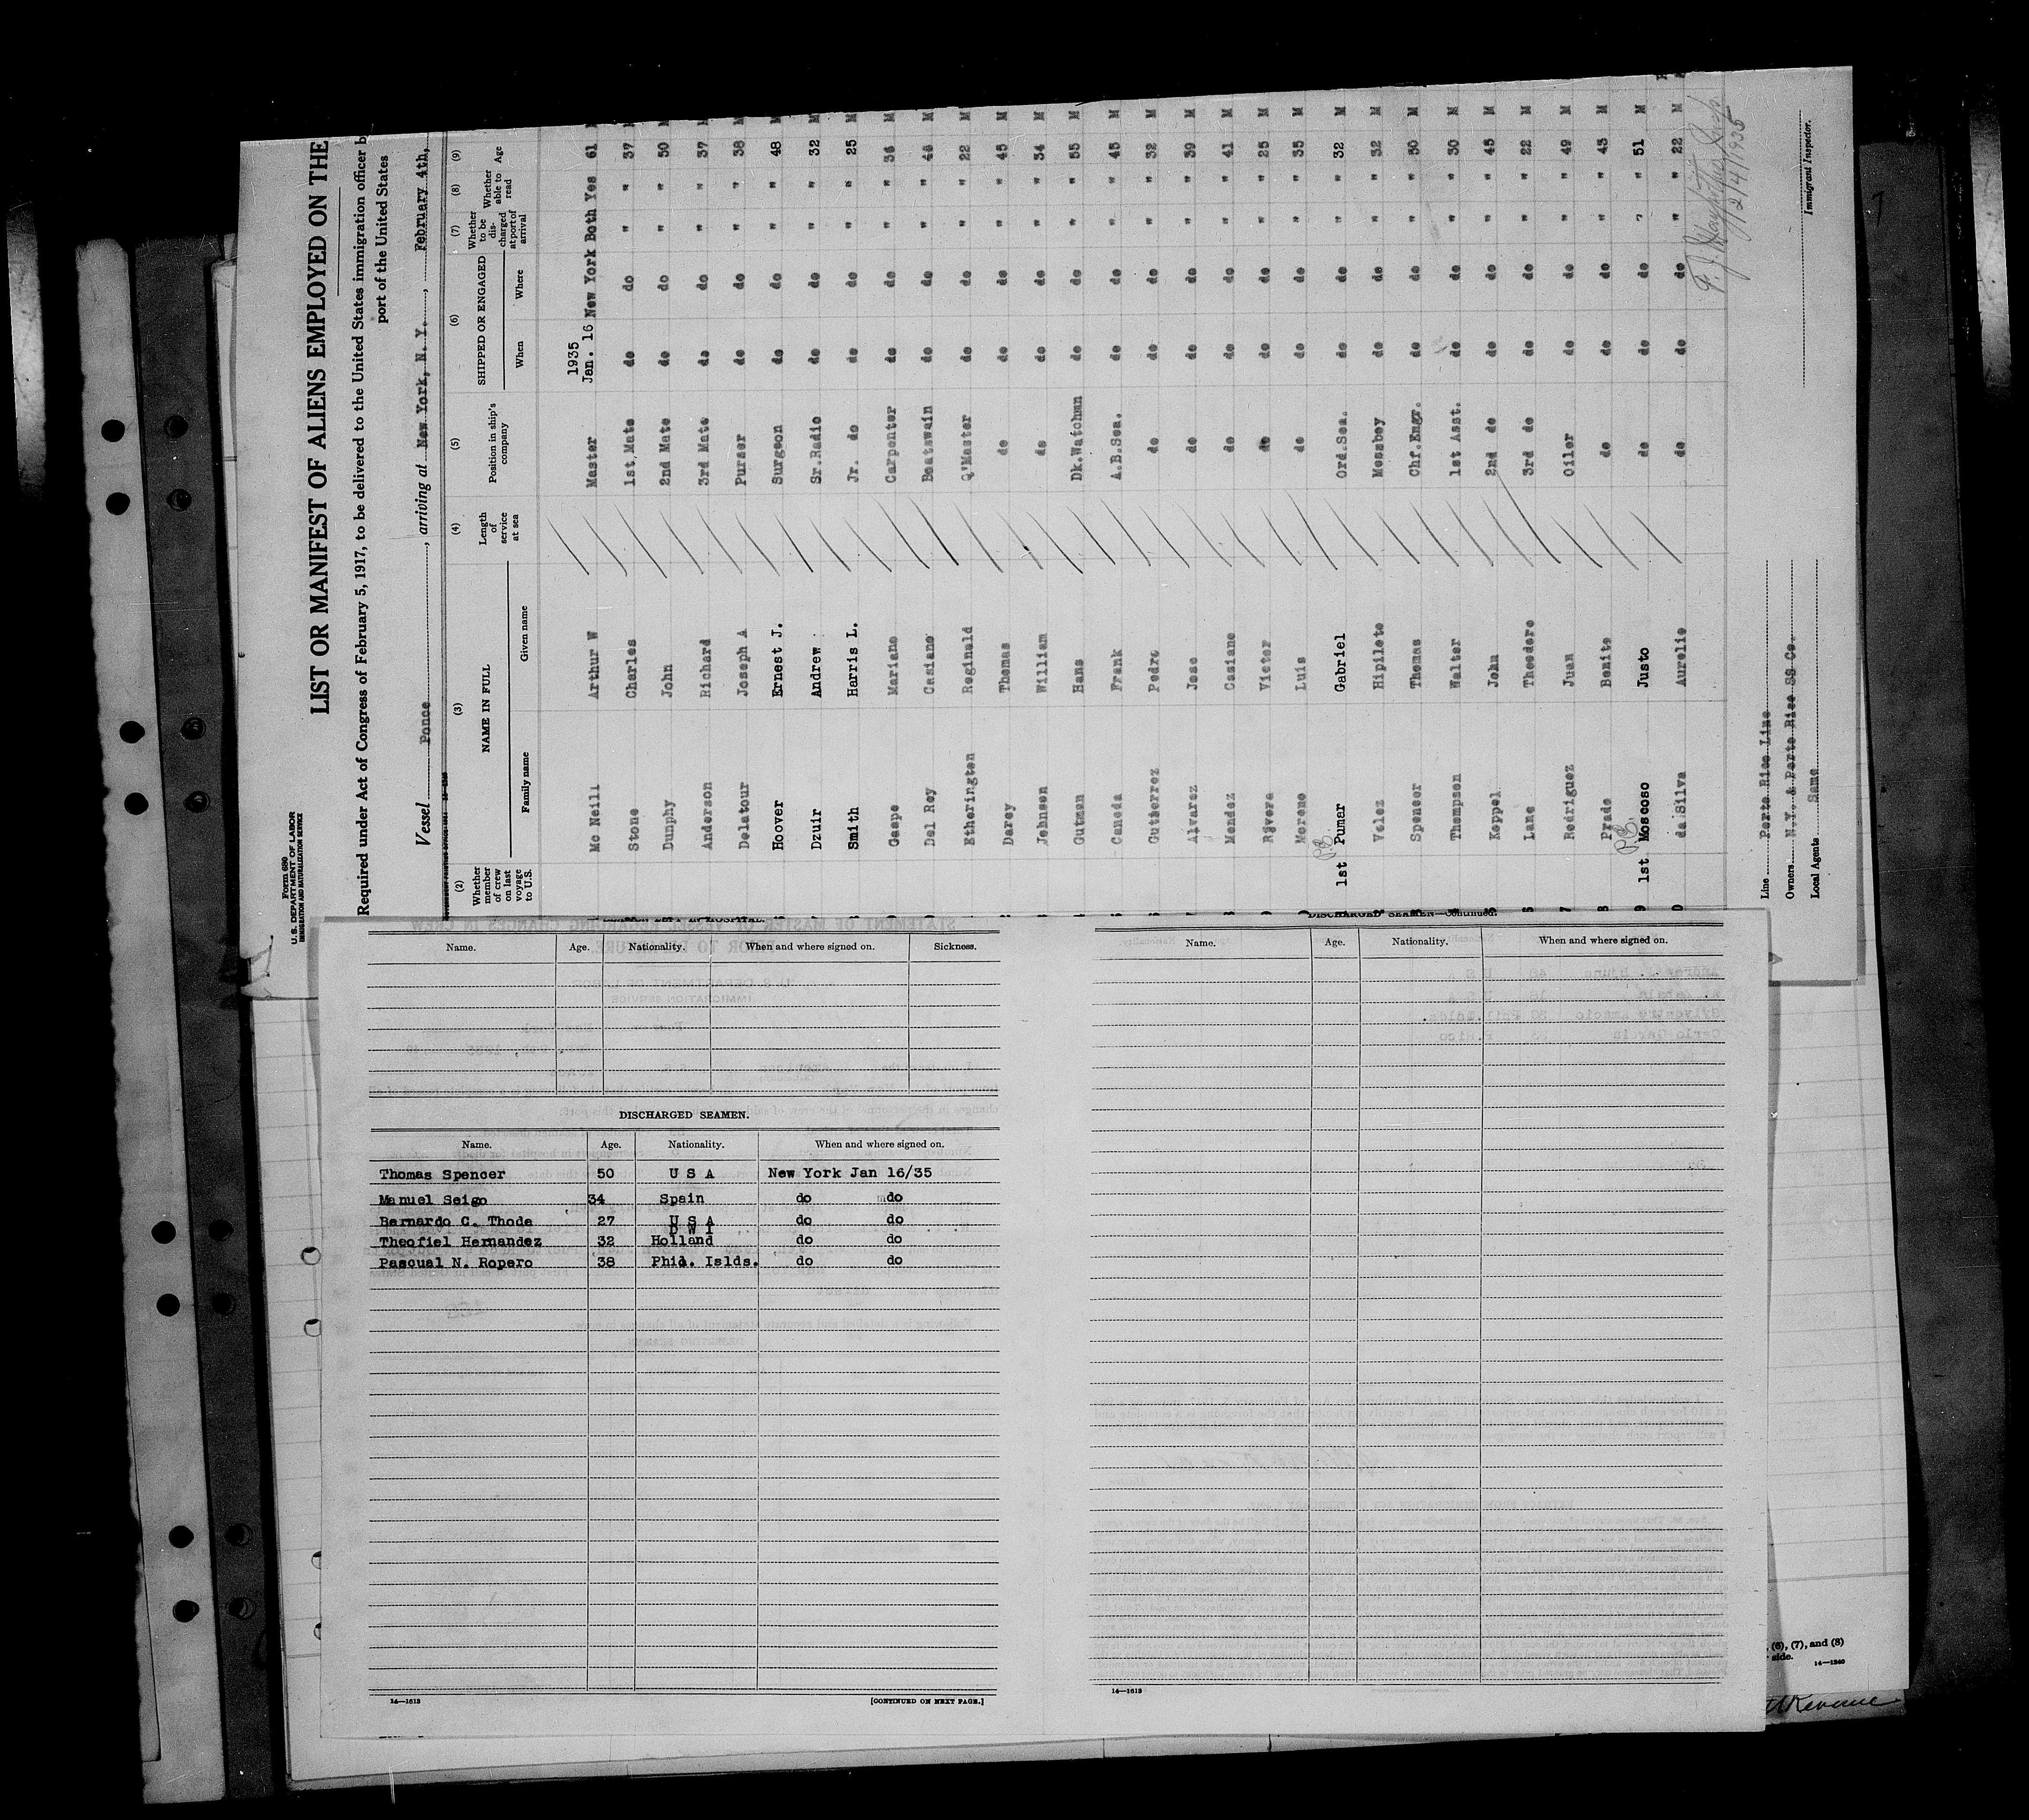 Form 680
U. S. DEPARTMENT OF LABOR
IMMIGRATION AND NATURALIZATION SERVICE
LIST OR MANIFEST OF ALIENS EMPLOYED ON THE
Required under Act of Congress of February 5, 1917, to be delivered to the United States immigration officer b
port of the United States
Vessel Ponce, arriving at New York, N. Y., February 4th,
(2) (3) (4) (5) (6) (7) (8) (9)
Whether member of crew on last voyage to U.S. NAME IN FULL Family name Given name Length of service at sea Position in ship's company SHIPPED OR ENGAGED When Where Whether to be discharged at port of arrival Whether able to read Age
1935
Mc Neill Arthur W Master Jan. 16 New York Both Yes 61 M
Stone Charles 1st Mate do do " " 37 M
Dunphy John 2nd Mate do do " " 50 M
Anderson Richard 3rd Mate do do " " 37 M
Delatour Joseph A Purser do do " " 38 M
Hoover Ernest J. Surgeon do do " " 48 M
Dzuir Andrew Sr.Radio do do " " 32 M
Smith Harris L. Jr. do do do " " 25 M
Gaspe Mariano Carpenter do do " " 36 M
Del Rey Casiano Boatswain do do " " 46 M
Etherington Reginald Q'Master do do " " 22 M
Darcy Thomas do do do " " 45 M
Johnson William do do do " " 34 M
Gutman Hans Dk.Watchman do do " " 55 M
Caneda Frank A.B.Sea. do do " " 45 M
Gutierrez Pedro do do do " " 32 M
Alvarez Jose do do do " " 39 M
Mendez Casiano do do do " " 41 M
Rivera Victor do do do " " 25 M
Moreno Luis do do do " " 35 M
1st Pumar Gabriel Ord.Sea. do do " " 32 M
Velez Hipileto Messboy do do " " 32 M
Spencer Thomas Chf.Engr. do do " " 50 M
Thompson Walter 1st Asst. do do " " 30 M
Koppel John 2nd do do do " " 45 M
Lane Theodore 3rd do do do " " 22 M
Rodriguez Juan Oiler do do " " 49 M
Prado Benito do do do " " 43 M
1st Moscoso Justo do do do " " 51 M
da Silva Aurelio do do do " " 22 M
2/4/1935
Immigrant Inspector.
Line Porto Rico Line
Owners N.Y. & Porto Rico SS Co.
Local Agents Same
Name. Age. Nationality. When and where signed on. Sickness.
DISCHARGED SEAMEN.
Name. Age. Nationality. When and where signed on.
Thomas Spencer 50 U S A New York Jan 16/35
Manuel Seigo 34 Spain do do
Bernardo C. Thode 27 U S A do do
D W I
Theofiel Hernandez 32 Holland do do
Pascual N. Ropero 38 Phil. Islds. do do
14—1613
[CONTINUED ON NEXT PAGE.]
DISCHARGED SEAMEN—Continued.
Name. Age. Nationality. When and where signed on.
14—1613
, (6), (7), and (8)
side.
14—1240